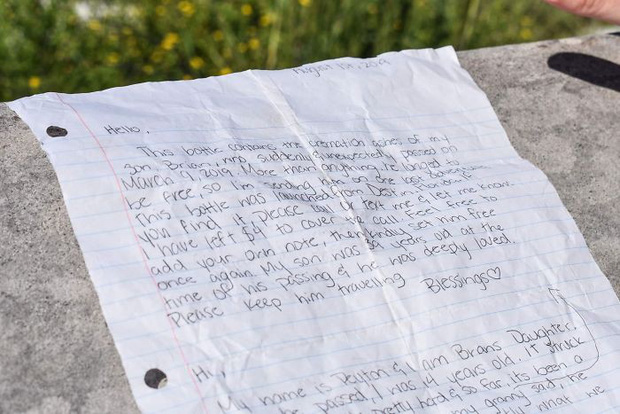 August 1st, 2019
Hello,
This bottle contains the cremation ashes of my
son, Brian, who suddenly & unexpectedly passed on
March 9, 2019. More than anything he longed to
be free so I'm sending him on one last
This bottle was launched from Destin, Florida
you find it please call text me & let me know.
I have left $4 to cover the call Feel free to
add your own note, then kindly set him free
once again. My son was years old at the
time of his passing & he was deeply loved.
Please keep him travelling Blessings♡
Hi,
My name is Peyton & I am Brians Daughter.
he passed, I was 14 years old. it struck
pretty hard & so far, its been a
my granny said, he
what we